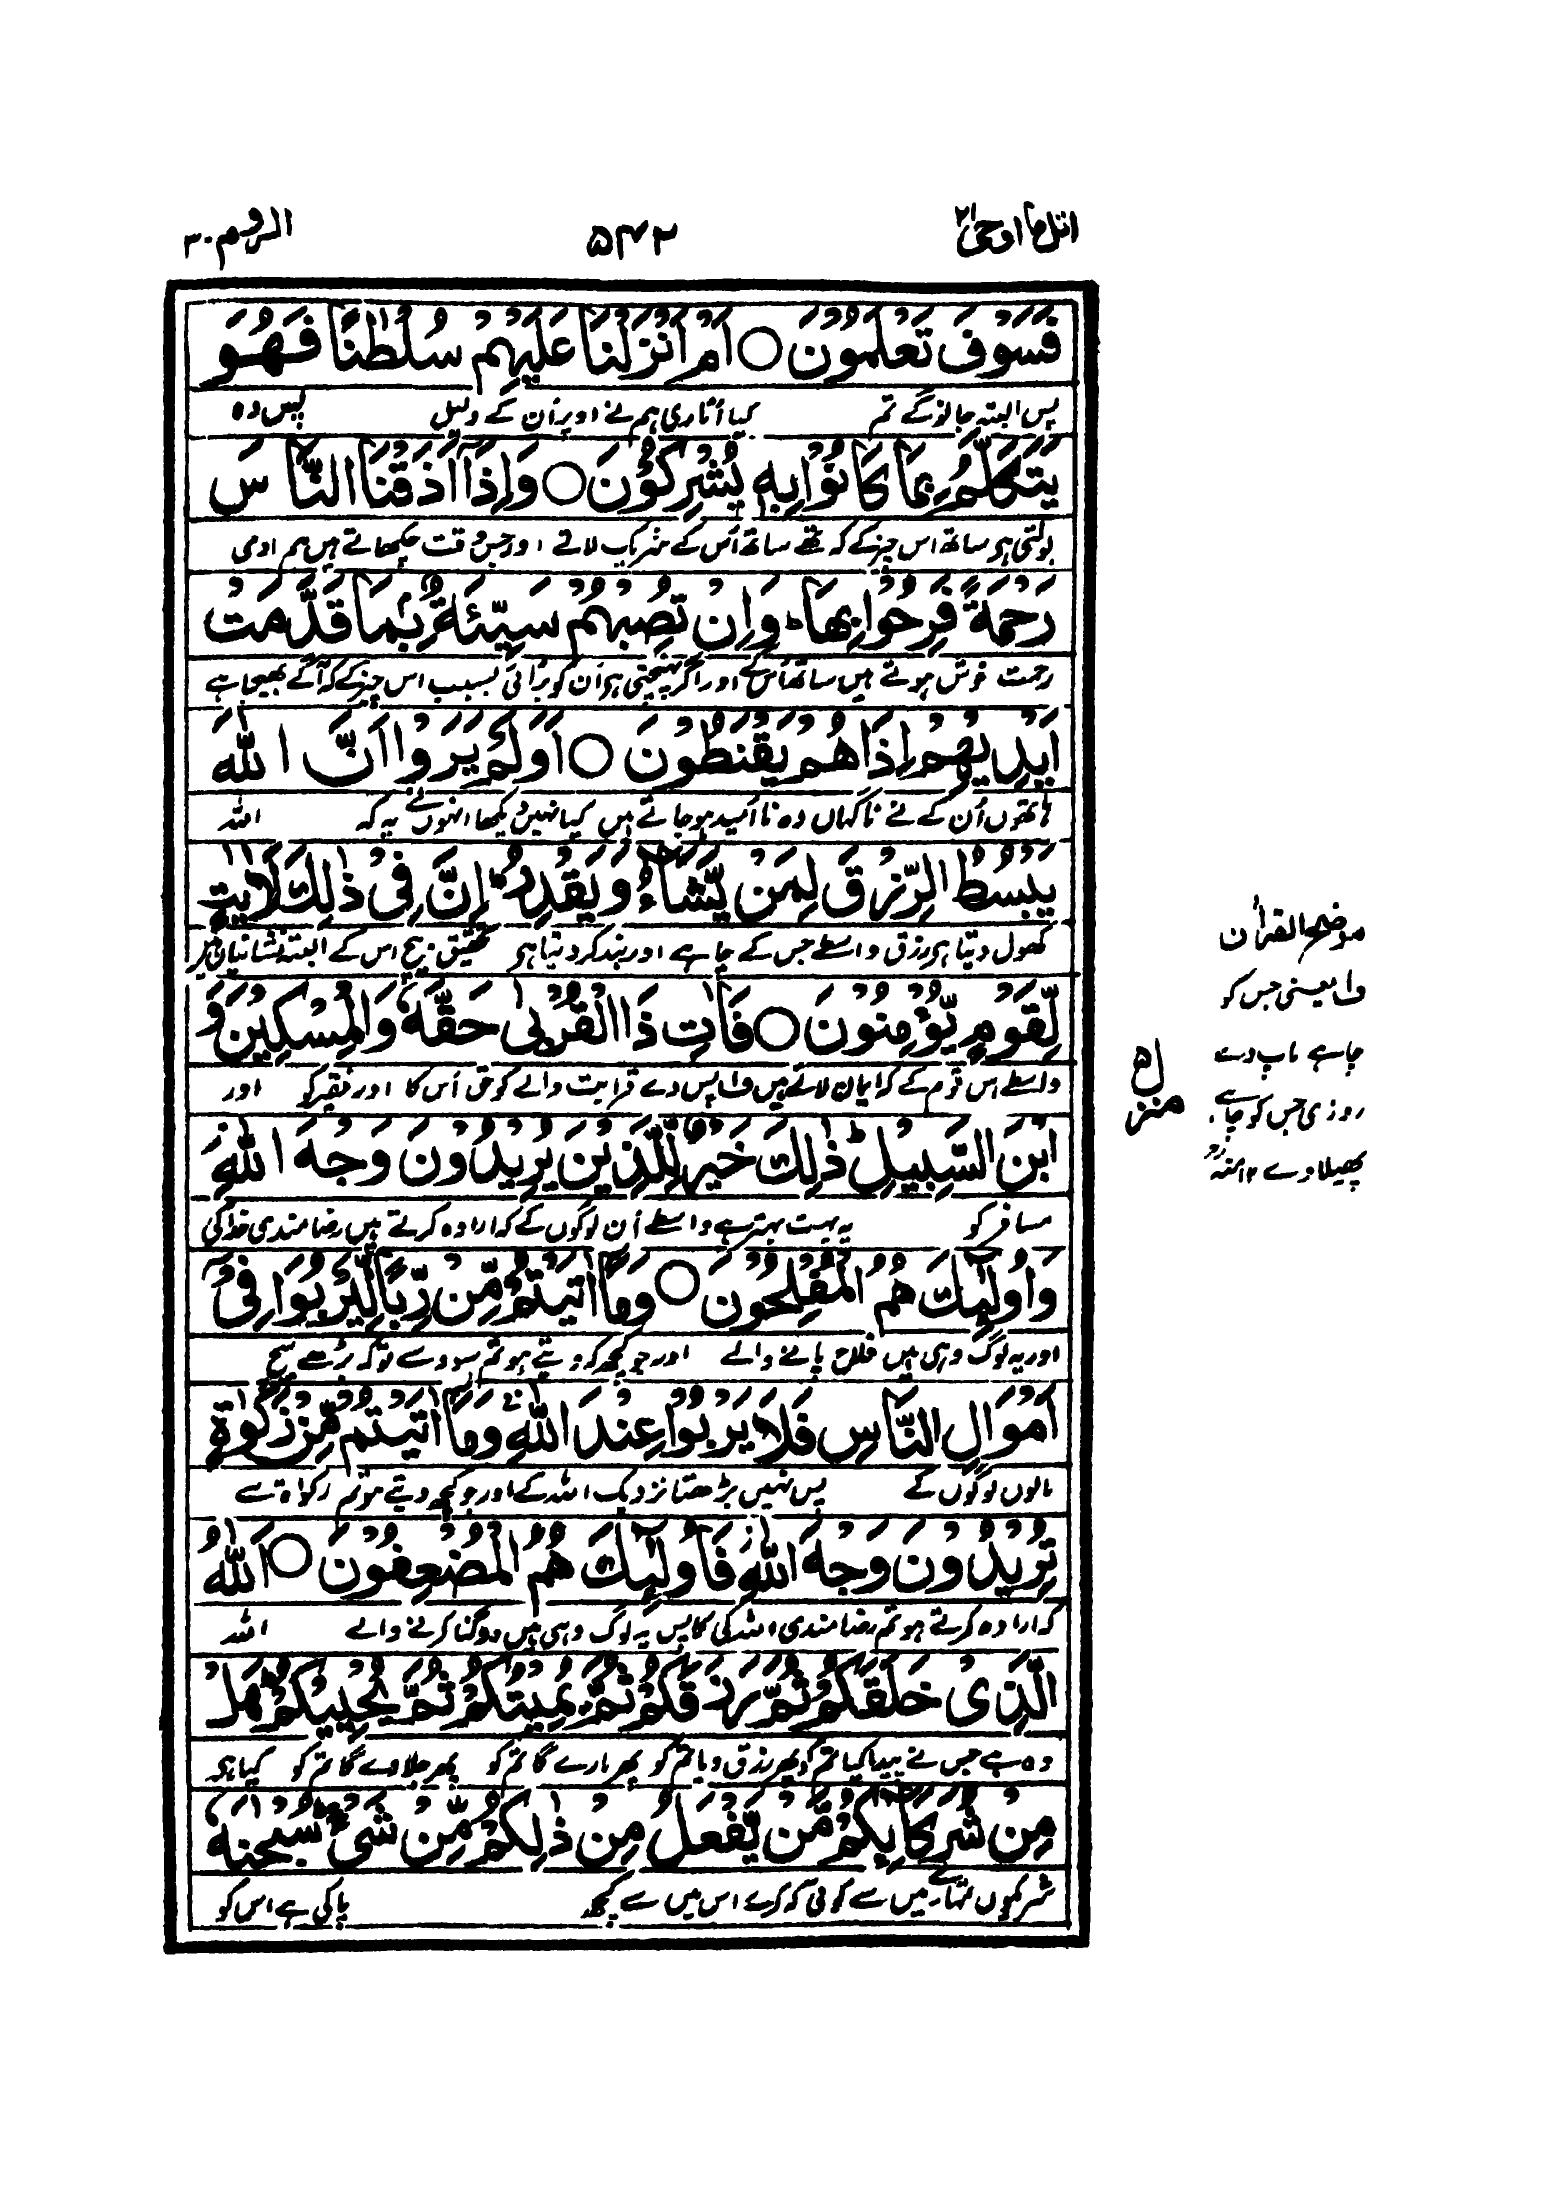 اتل ما اوحی ۲۱
۵۴۲
الروم ۳۰
فَسَوْفَ تَعْلَمُوْنَ ○ اَمْ اَنْزَلْنَا عَلَيْهِمْ سُلْطٰنًا فَهُوَ
پس البتہ جانو گے تم کیا اُتاری ہم نے اوپر اُن کے دلیل پس وہ
يَتَكَلَّمُ بِمَا كَانُوْا بِهٖ يُشْرِكُوْنَ ○ وَاِذَآ اَذَقْنَا النَّاسَ
بولتی ہی ساتھ اس چیز کے کہ تھے ساتھ اُس کے شریک لاتے اور جس وقت چکھاتے ہیں ہم ادمی
رَحْمَةً فَرِحُوْا بِهَا ؕ وَاِنْ تُصِبْهُمْ سَيِّئَةٌۢ بِمَا قَدَّمَتْ
رحمت خوش ہوتے ہیں ساتھ اُس کے اور اگر پہنچتی ہی اُن کو بُرائی بسبب اس چیز کے کہ آگے بھیجا ہے
اَيْدِيْهِمْ اِذَا هُمْ يَقْنَطُوْنَ ○ اَوَلَمْ يَرَوْا اَنَّ اللّٰهَ
ہاتھوں اُن کے نے ناگہاں وہ نا اُمید ہو جاتے ہیں کیا نہیں دیکھا انہوں نے یہ کہ اللہ
يَبْسُطُ الرِّزْقَ لِمَنْ يَّشَآءُ وَيَقْدِرُ ؕ اِنَّ فِيْ ذٰلِكَ لَاٰيٰتٍ
کھول دیتا ہی رزق واسطے جس کے چاہے اور بند کر دیتا ہی تحقیق بیچ اس کے البتہ نشانیاں ہیں
لِّقَوْمٍ يُّؤْمِنُوْنَ ○ فَاٰتِ ذَا الْقُرْبٰى حَقَّهٗ وَالْمِسْكِيْنَ وَ
واسطے اس قوم کے کہ ایمان لاتے ہیں ف۱ پس دے قرابت والے کو حق اُس کا اور فقیر کو اور
ابْنَ السَّبِيْلِ ؕ ذٰلِكَ خَيْرٌ لِّلَّذِيْنَ يُرِيْدُوْنَ وَجْهَ اللّٰهِ
مسافر کو یہ بہت بہتر ہے واسطے اُن لوگوں کے کہ ارادہ کرتے ہیں رضامندی خدا کی
وَاُولٰٓئِكَ هُمُ الْمُفْلِحُوْنَ ○ وَمَآ اٰتَيْتُمْ مِّنْ رِّبًا لِّيَرْبُوَا۟ فِيْٓ
اور یہ لوگ وہی ہیں فلاح پانے والے اور جو کچھ کہ دیتے ہو تم سود سے تو کہ بڑھے بیچ
اَمْوَالِ النَّاسِ فَلَا يَرْبُوْا عِنْدَ اللّٰهِ ۚ وَمَآ اٰتَيْتُمْ مِّنْ زَكٰوةٍ
مالوں لوگوں کے پس نہیں بڑھتا نزدیک اللہ کے اور جو کچھ دیتے ہو تم زکواۃ سے
تُرِيْدُوْنَ وَجْهَ اللّٰهِ فَاُولٰٓئِكَ هُمُ الْمُضْعِفُوْنَ ○ اَللّٰهُ
کہ ارادہ کرتے ہو تم رضامندی اللہ کی کا پس یہ لوگ وہی ہیں دوگنا کرنے والے اللہ
الَّذِيْ خَلَقَكُمْ ثُمَّ رَزَقَكُمْ ثُمَّ يُمِيْتُكُمْ ثُمَّ يُحْيِيْكُمْ ؕ هَلْ
وہ ہے جس نے پیدا کیا تم کو پھر رزق دیا تم کو پھر مارے گا تم کو پھر جلاوے گا تم کو کیا ہی
مِنْ شُرَكَآئِكُمْ مَّنْ يَّفْعَلُ مِنْ ذٰلِكُمْ مِّنْ شَيْءٍ ؕ سُبْحٰنَهٗ
شریکوں تمہارے میں سے کوئی کہ کرے اس میں سے کچھ پاکی ہے اس کو
موضح القرآن
ف۱ یعنی جس کو
چاہے ناپ دے
روزی جس کو چاہے
پھیلا دے ۱۲ منہ رح
منزل ۵